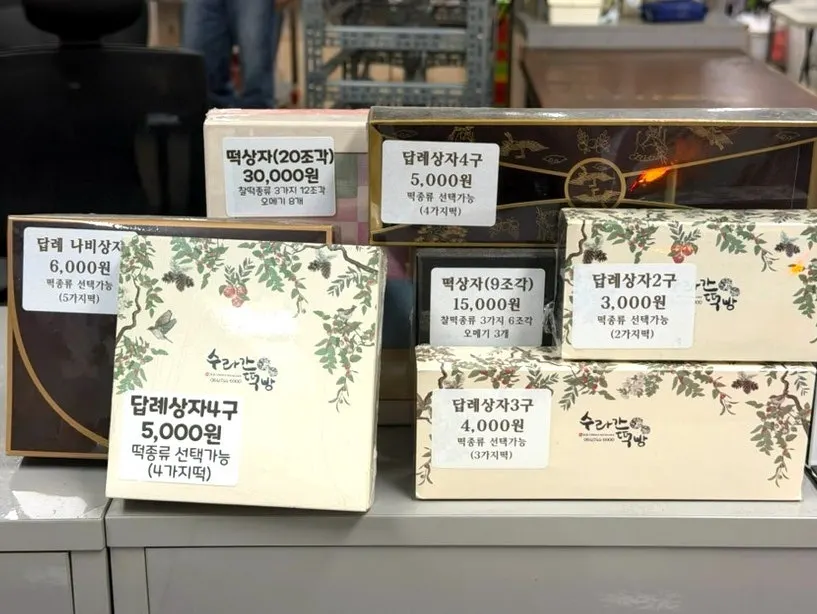 떡상자(20조각)
30,000원
찰떡종류 3가지 12조각
오메기 8개
답례상자4구
5,000원
떡종류 선택가능
(4가지떡)
답례 나비상자
6,000원
떡종류 선택가능
(5가지떡)
떡상자(9조각)
15,000원
찰떡종류 3가지 6조각
오메기 3개
답례상자2구
3,000원
떡종류 선택가능
(2가지떡)
떡방
수라간
떡방
064)744-6900
답례상자4구
5,000원
떡종류 선택가능
(4가지떡)
답례상자3구
4,000원
떡종류 선택가능
(3가지떡)
수라간
떡방
064)744-6900